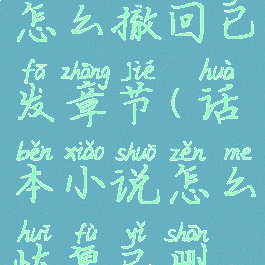 怎么撤回已
fā zhāng jié huà
发章节(话
běn xiǎo shuō zěn me
本小说怎么
huī fù yǐ shān
恢复已删